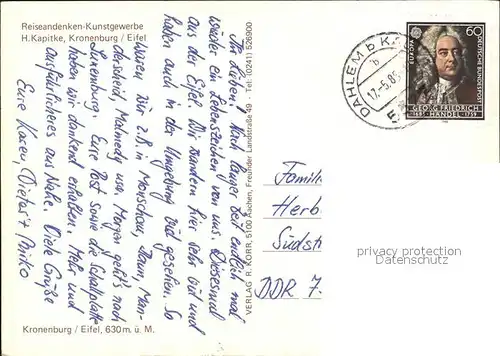 Reiseandenken-Kunstgewerbe
H. Kapitke, Kronenburg / Eifel
Ihr Lieben! Nach langer Zeit endlich mal
wieder ein Lebenszeichen von uns. Diesesmal
aus der Eifel. Wir wandern hier sehr viel und
haben auch in der Umgebung viel gesehen. So
waren wir z.B. in Monschau, Maan, Man-
derscheid, Malmedy usw. Morgen geht's nach
Luxemburg. Eure Post sowie die Schallplatte
haben wir dankend erhalten. Mehr und
ausführlicheres aus Nahe. Viele Grüße
Eure Karen, Dieter +
Kronenburg / Eifel, 630 m. ü. M.
VERLAG R. KORR, 5100 Aachen, Freunder Landstraße 49 - Tel: (0241) 526900
DAHLEM b K
b
17.-5.85
EUROPA
60
DEUTSCHE BUNDESPOST
GEORG FRIEDRICH
1685 HÄNDEL 1759
Famili
Herb
Südst
DDR 7
privacy protection
Datenschutz